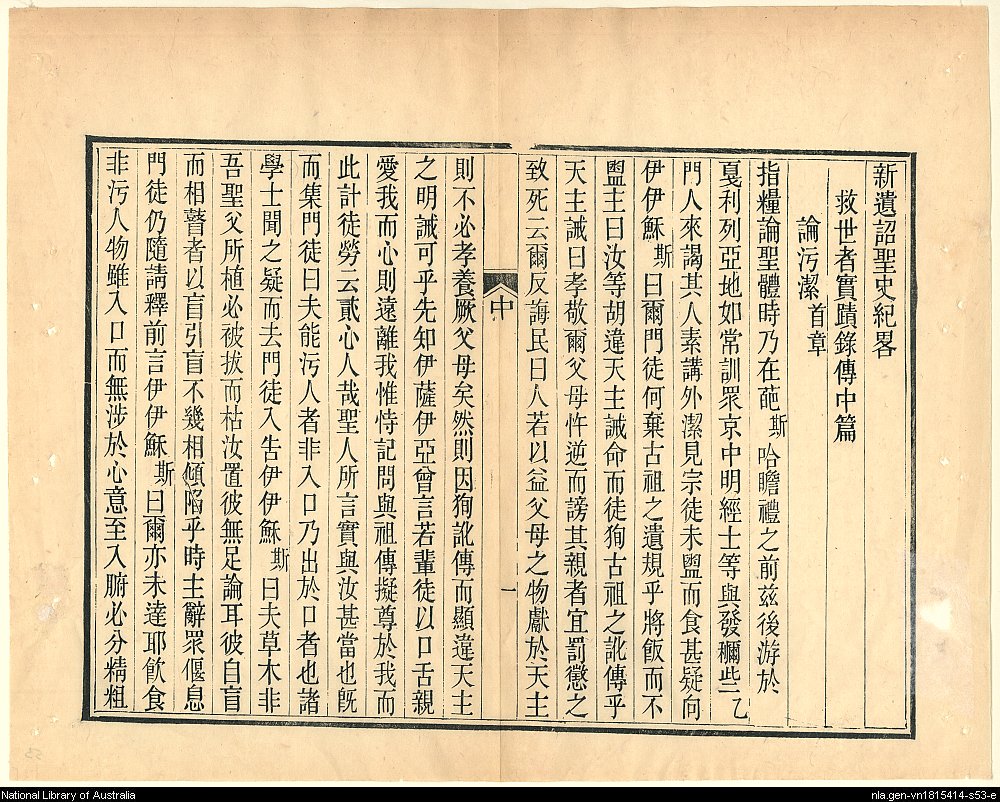 新遺詔聖史紀畧
救世者實蹟錄傳中篇
論污潔首章
指糧論聖體時乃在葩斯哈瞻禮之前茲後游於
戛利列亞地如常訓眾京中明經士等與發穪些乙
門人來謁其人素講外潔見宗徒未盥而食甚疑向
伊伊穌斯曰爾門徒何棄古祖之遺規乎將飯而不
盥主曰汝等胡違天主誡命而徒狥古祖之訛傳乎
天主誡曰孝敬爾父母忤逆而謗其親者宜罰懲之
致死云爾反誨民曰人若以益父母之物獻於天主
中
一
則不必孝養厥父母矣然則因狥訛傳而顯違天主
之明誡可乎先知伊薩伊亞曾言若輩徒以口舌親
愛我而心則遠離我惟恃記問與祖傳擬尊於我而
此計徒勞云貳心人哉聖人所言實與汝甚當也旣
而集門徒曰夫能污人者非入口乃出於口者也諸
學士聞之疑而去門徒入告伊伊穌斯曰夫草木非
吾聖父所植必被拔而枯汝置彼無足論耳彼自盲
而相瞽者以盲引盲不幾相傾陷乎時主辭眾偃息
門徒仍隨請釋前言伊伊穌斯曰爾亦未達耶飲食
非污人物雖入口而無涉於心意至入腑必分精粗
National Library of Australia
nla.gen-vn1815414-s53-e